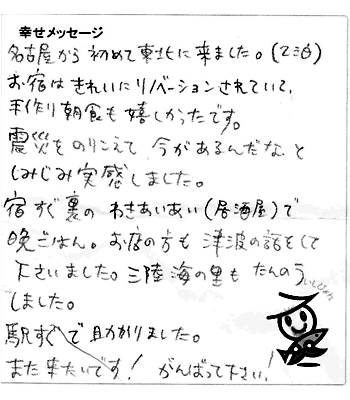 幸せメッセージ
名古屋から初めて東北に来ました。(2泊)
お宿はきれいにリノベーションされていて、
手作り朝食も嬉しかったです。
震災をのりこえて今があるんだな と
しみじみ実感しました。
宿すぐ裏の わきあいあい(居酒屋)で
晩ごはん。お店の方も 津波の話をして
下さいました。三陸海の里も たんのう
しました。
駅すぐで助かりました。
また来たいです! がんばって下さい!